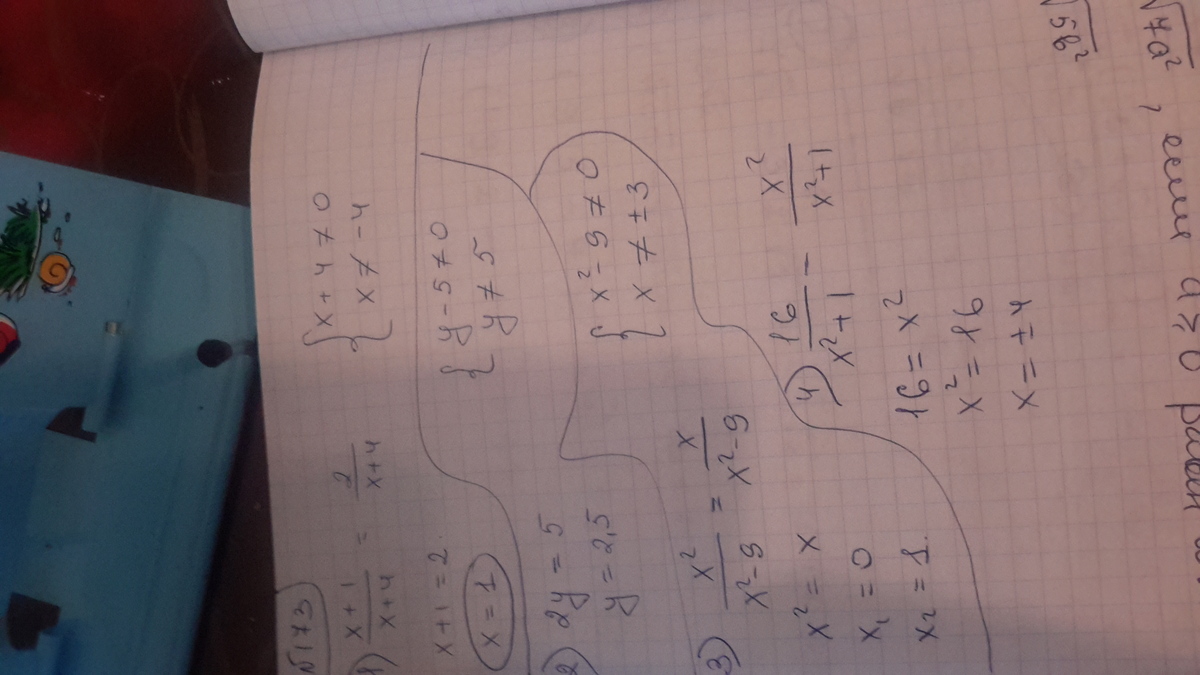 N173
1) x+1/x+4 = 2/x+4
{x+4≠0
x≠-4
x+1=2.
x=1
2) 2y=5
y=2,5
{y-5≠0
y≠5
3) x²/x²-9 = x/x²-9
{x²-9≠0
x≠±3
x²=x
x₁=0
x₂=1.
4) 16/x²+1 - x²/x²+1
16=x²
x²=16
x=±4
√5b²
√7a², если a≤0 равен